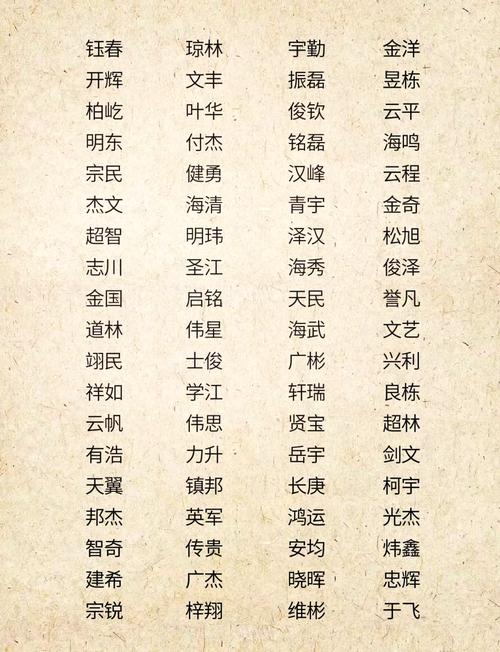 钰春 琼林 宇勤 金洋
开辉 文丰 振磊 昱栋
柏屹 叶华 俊钦 云平
明东 付杰 铭磊 海鸣
宗民 健勇 汉峰 云程
杰文 海清 青宇 金奇
超智 明玮 泽汉 松旭
志川 圣江 海秀 俊泽
金国 启铭 天民 誉凡
道林 伟星 海武 文艺
翊民 士俊 广彬 兴利
祥如 学江 轩瑞 良栋
云帆 伟思 贤宝 超林
有浩 力升 岳宇 剑文
天翼 镇邦 长庚 柯宇
邦杰 英军 鸿运 光杰
智奇 传贵 安均 炜鑫
建希 广杰 晓晖 忠辉
宗锐 梓翔 维彬 于飞